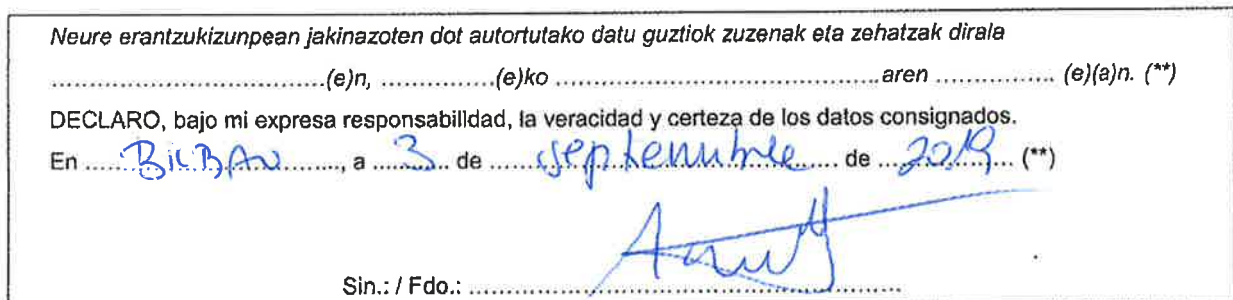 Neure erantzukizunpean jakinazoten dot autortutako datu guztiok zuzenak eta zehatzak dirala
................................(e)n, .............(e)ko .....................................aren ............... (e)(a)n. (**)
DECLARO, bajo mi expresa responsabilidad, la veracidad y certeza de los datos consignados.
En BILBAO, a 3 de septiembre de 2019 (**)
Sin.: / Fdo.: ..................................................